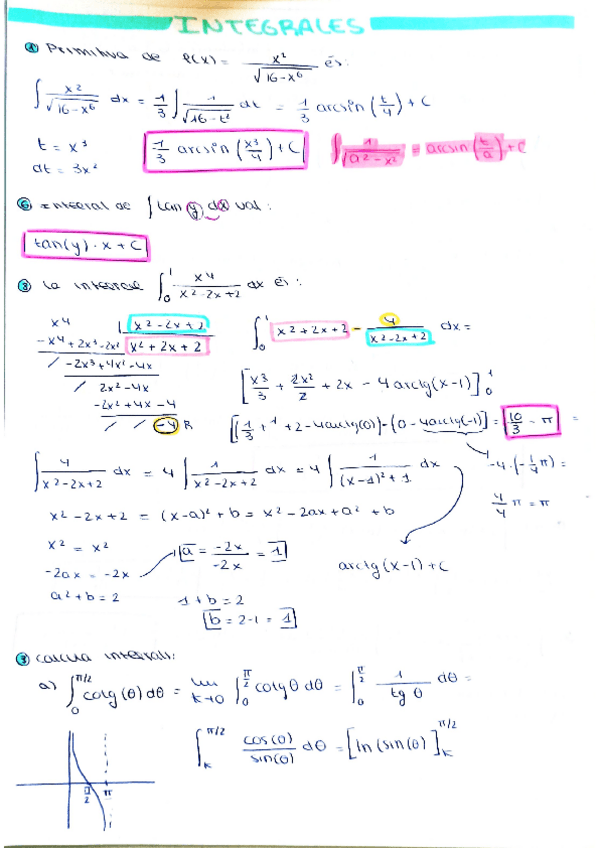 INTEGRALES
① Primitiva de f(x) = x²/√(16-x⁶) és:
∫ x²/√(16-x⁶) dx = 1/3 ∫ 1/√(16-t²) dt = 1/3 arcsin (t/4) + C
t = x³
dt = 3x²
1/3 arcsin (x³/4) + C
∫ 1/√(a²-x²) = arcsin (t/a) + C
⑥ Integral de ∫ tan y dx val:
tan(y) · x + C
③ La integral ∫₀¹ x⁴/(x²-2x+2) dx és:
x⁴ | x²-2x+2
-x⁴+2x³-2x² x²+2x+2
/ -2x³+4x²-4x
/ 2x²-4x
-2x²+4x-4
/ / -4 R
∫₀¹ x²+2x+2 - 4/(x²-2x+2) dx =
[x³/3 + 2x²/2 + 2x - 4 arctg(x-1)]₀¹
[(1/3 + 1 + 2 - 4 arctg(0)) - (0 - 4 arctg(-1))] = 10/3 - π =
-4·(-1/4 π) =
4/4 π = π
∫ 4/(x²-2x+2) dx = 4 ∫ 1/(x²-2x+2) dx = 4 ∫ 1/((x-1)²+1) dx
x²-2x+2 = (x-a)²+b = x²-2ax+a²+b
x² = x²
-2ax = -2x
a²+b = 2
a = -2x/-2x = 1
1+b = 2
b = 2-1 = 1
arctg(x-1)+C
③ Calcula integrals:
a) ∫₀^(π/2) cotg(θ) dθ = lim k→0 ∫₀^(π/2) cotg θ dθ = ∫₀^(π/2) 1/tg θ dθ =
∫ₖ^(π/2) cos(θ)/sin(θ) dθ = [ln(sin(θ)]ₖ^(π/2)
π/2 π